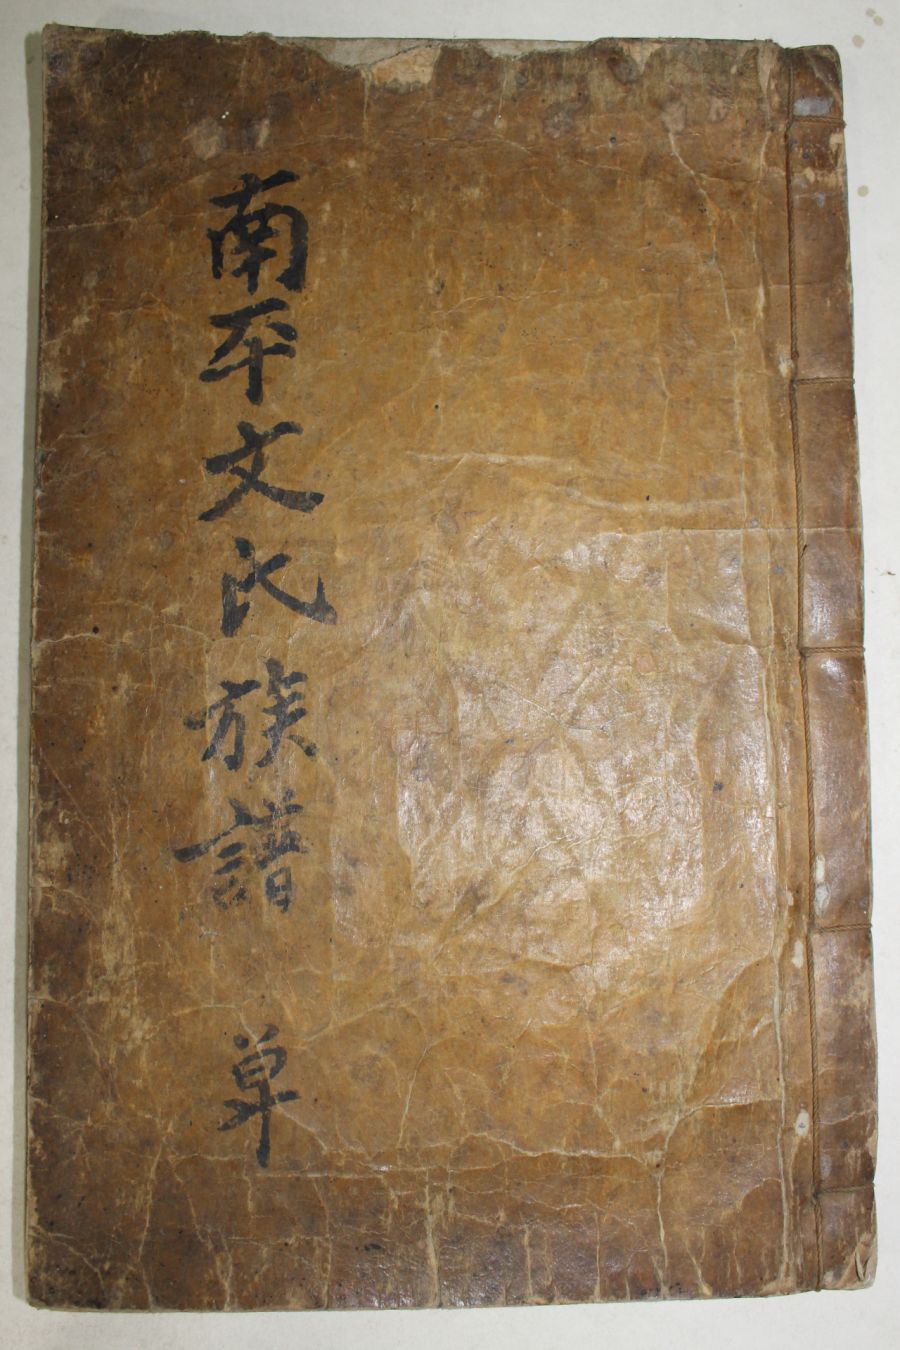 南平文氏族譜 単